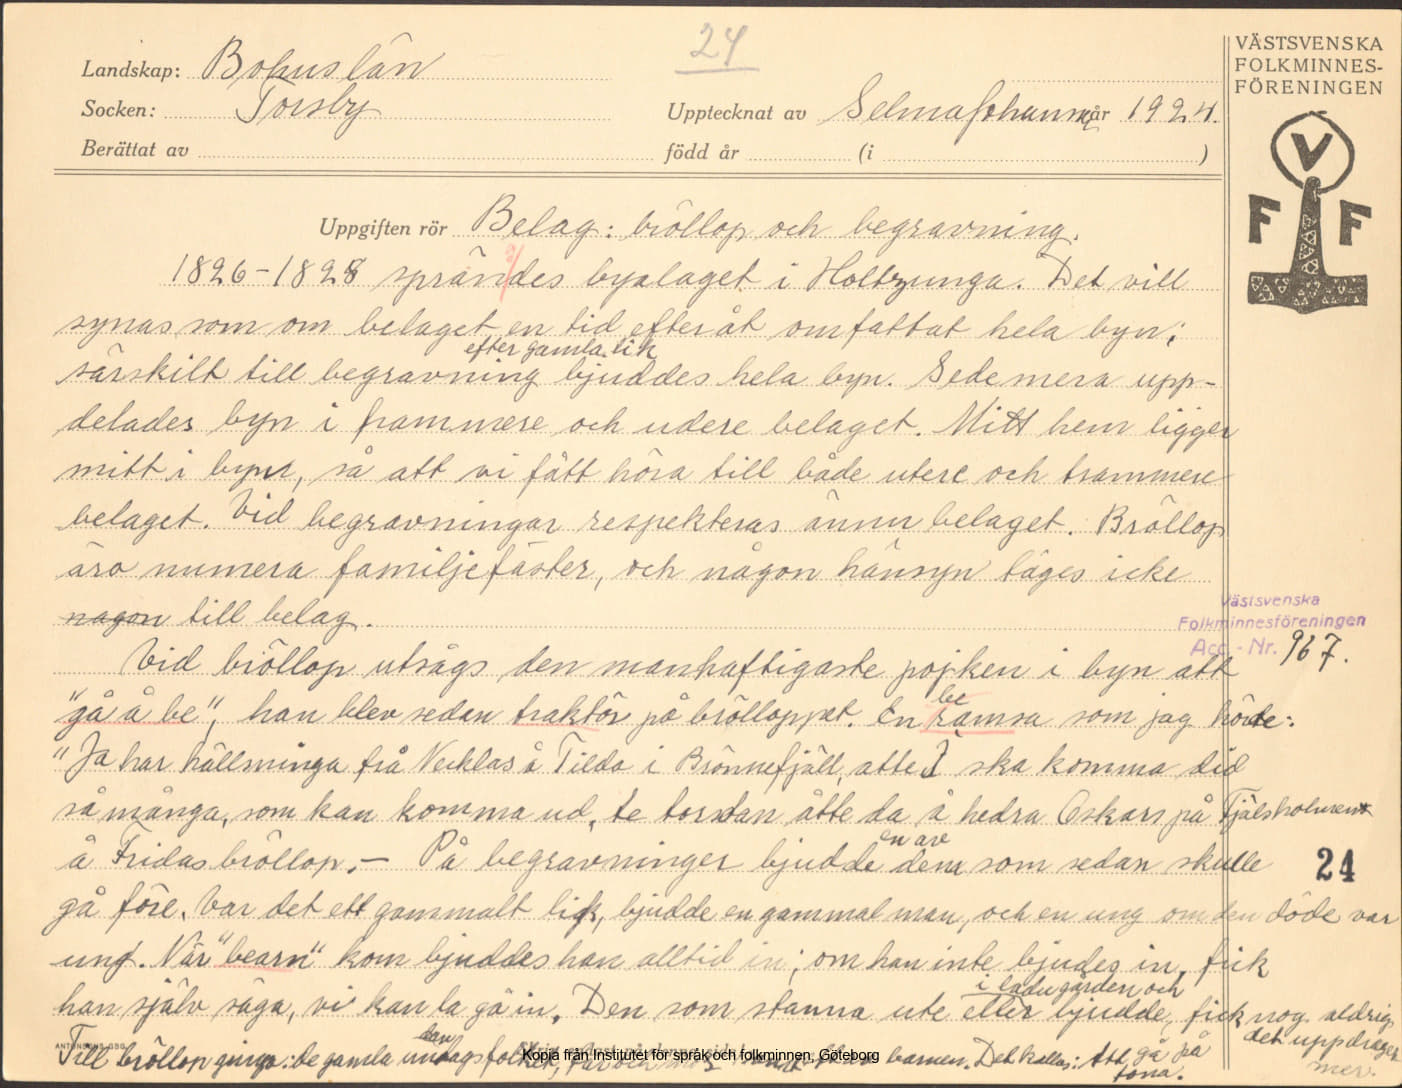 24
Landskap: Bohuslän
Socken: Torsby
Upptecknat av Selma Johansson år 1924.
Berättat av
född år (i )
VÄSTSVENSKA
FOLKMINNES-
FÖRENINGEN
V
F F
Uppgiften rör Belag: bröllop och begravning.
1826-1828 sprängdes byalaget i Holtzunga. Det vill
synas som om belaget en tid efteråt omfattat hela byn;
efter gamla lik
särskilt till begravning bjuddes hela byn. Sedemera upp-
delades byn i frammere och udere belaget. Mitt hem ligger
mitt i byn, så att vi fått höra till både utere och frammere
belaget. Vid begravningar respekteras ännu belaget. Bröllop
äro numera familjefäster, och någon hänsyn tages icke
någon till belag.
Västsvenska
Folkminnesföreningen
Acc.-Nr. 967.
Vid bröllop utsågs den manhaftigaste pojken i byn att
"gå å be", han blev sedan traktör på bröllopet. En beramsa som jag hörde:
"Ja har hällsninga frå Necklas å Tilda i Brönnefjäll, atte I ska komma did
så många, som kan komma ud, te torsdan åtte da å hedra Oskars på Tjälsholmen
å Fridas bröllop. — På begravninger bjudde en av dem som sedan skulle
24
gå före. Var det ett gammalt lik, bjudde en gammal man, och en ung om den döde var
ung. När "bearn" kom bjuddes han alltid in; om han inte bjudes in, fick
i ladugården och
han själv säga, vi kan la gå in. Den som stanna ute eller bjudde, fick nog aldrig
det uppdraget
mer.
Till bröllop ginge: de gamla undagsfolket, far och mor samt barnen. Det kallas: att gå på
tona.
ANTONSONS GBG
Kopia från Institutet för språk och folkminnen, Göteborg